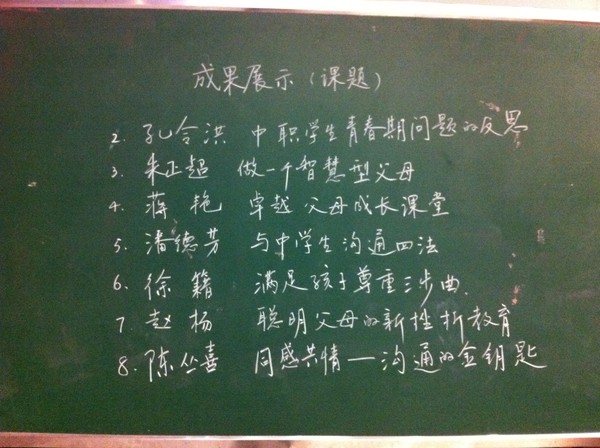 成果展示（课题）
2. 孔令洪 中职学生青春期问题的反思
3. 朱正超 做一个智慧型父母
4. 蒋艳 卓越父母成长课堂
5. 潘德芳 与中学生沟通四法
6. 徐籍 满足孩子尊重三步曲.
7 赵杨 聪明父母的新挫折教育
8. 陈丛喜 同感共情—沟通的金钥匙